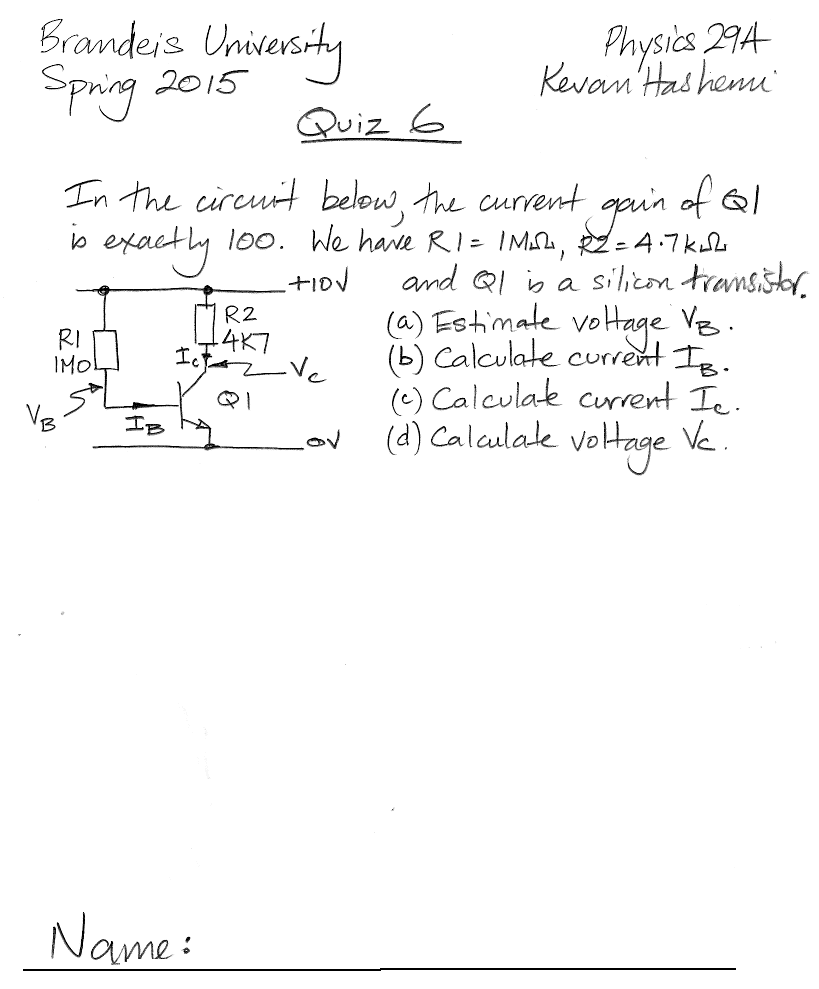 Brandeis University
Physics 29A
Spring 2015
Kevan Hashemi
Quiz 6
In the circuit below, the current gain of Q1
is exactly 100. We have R1 = 1MΩ, R2 = 4.7kΩ
and Q1 is a silicon transistor.
(a) Estimate voltage VB.
(b) Calculate current IB.
(c) Calculate current Ic.
(d) Calculate voltage Vc.
+10V
R2
4K7
R1
1M0
Ic
Vc
Q1
VB
IB
0V
Name: